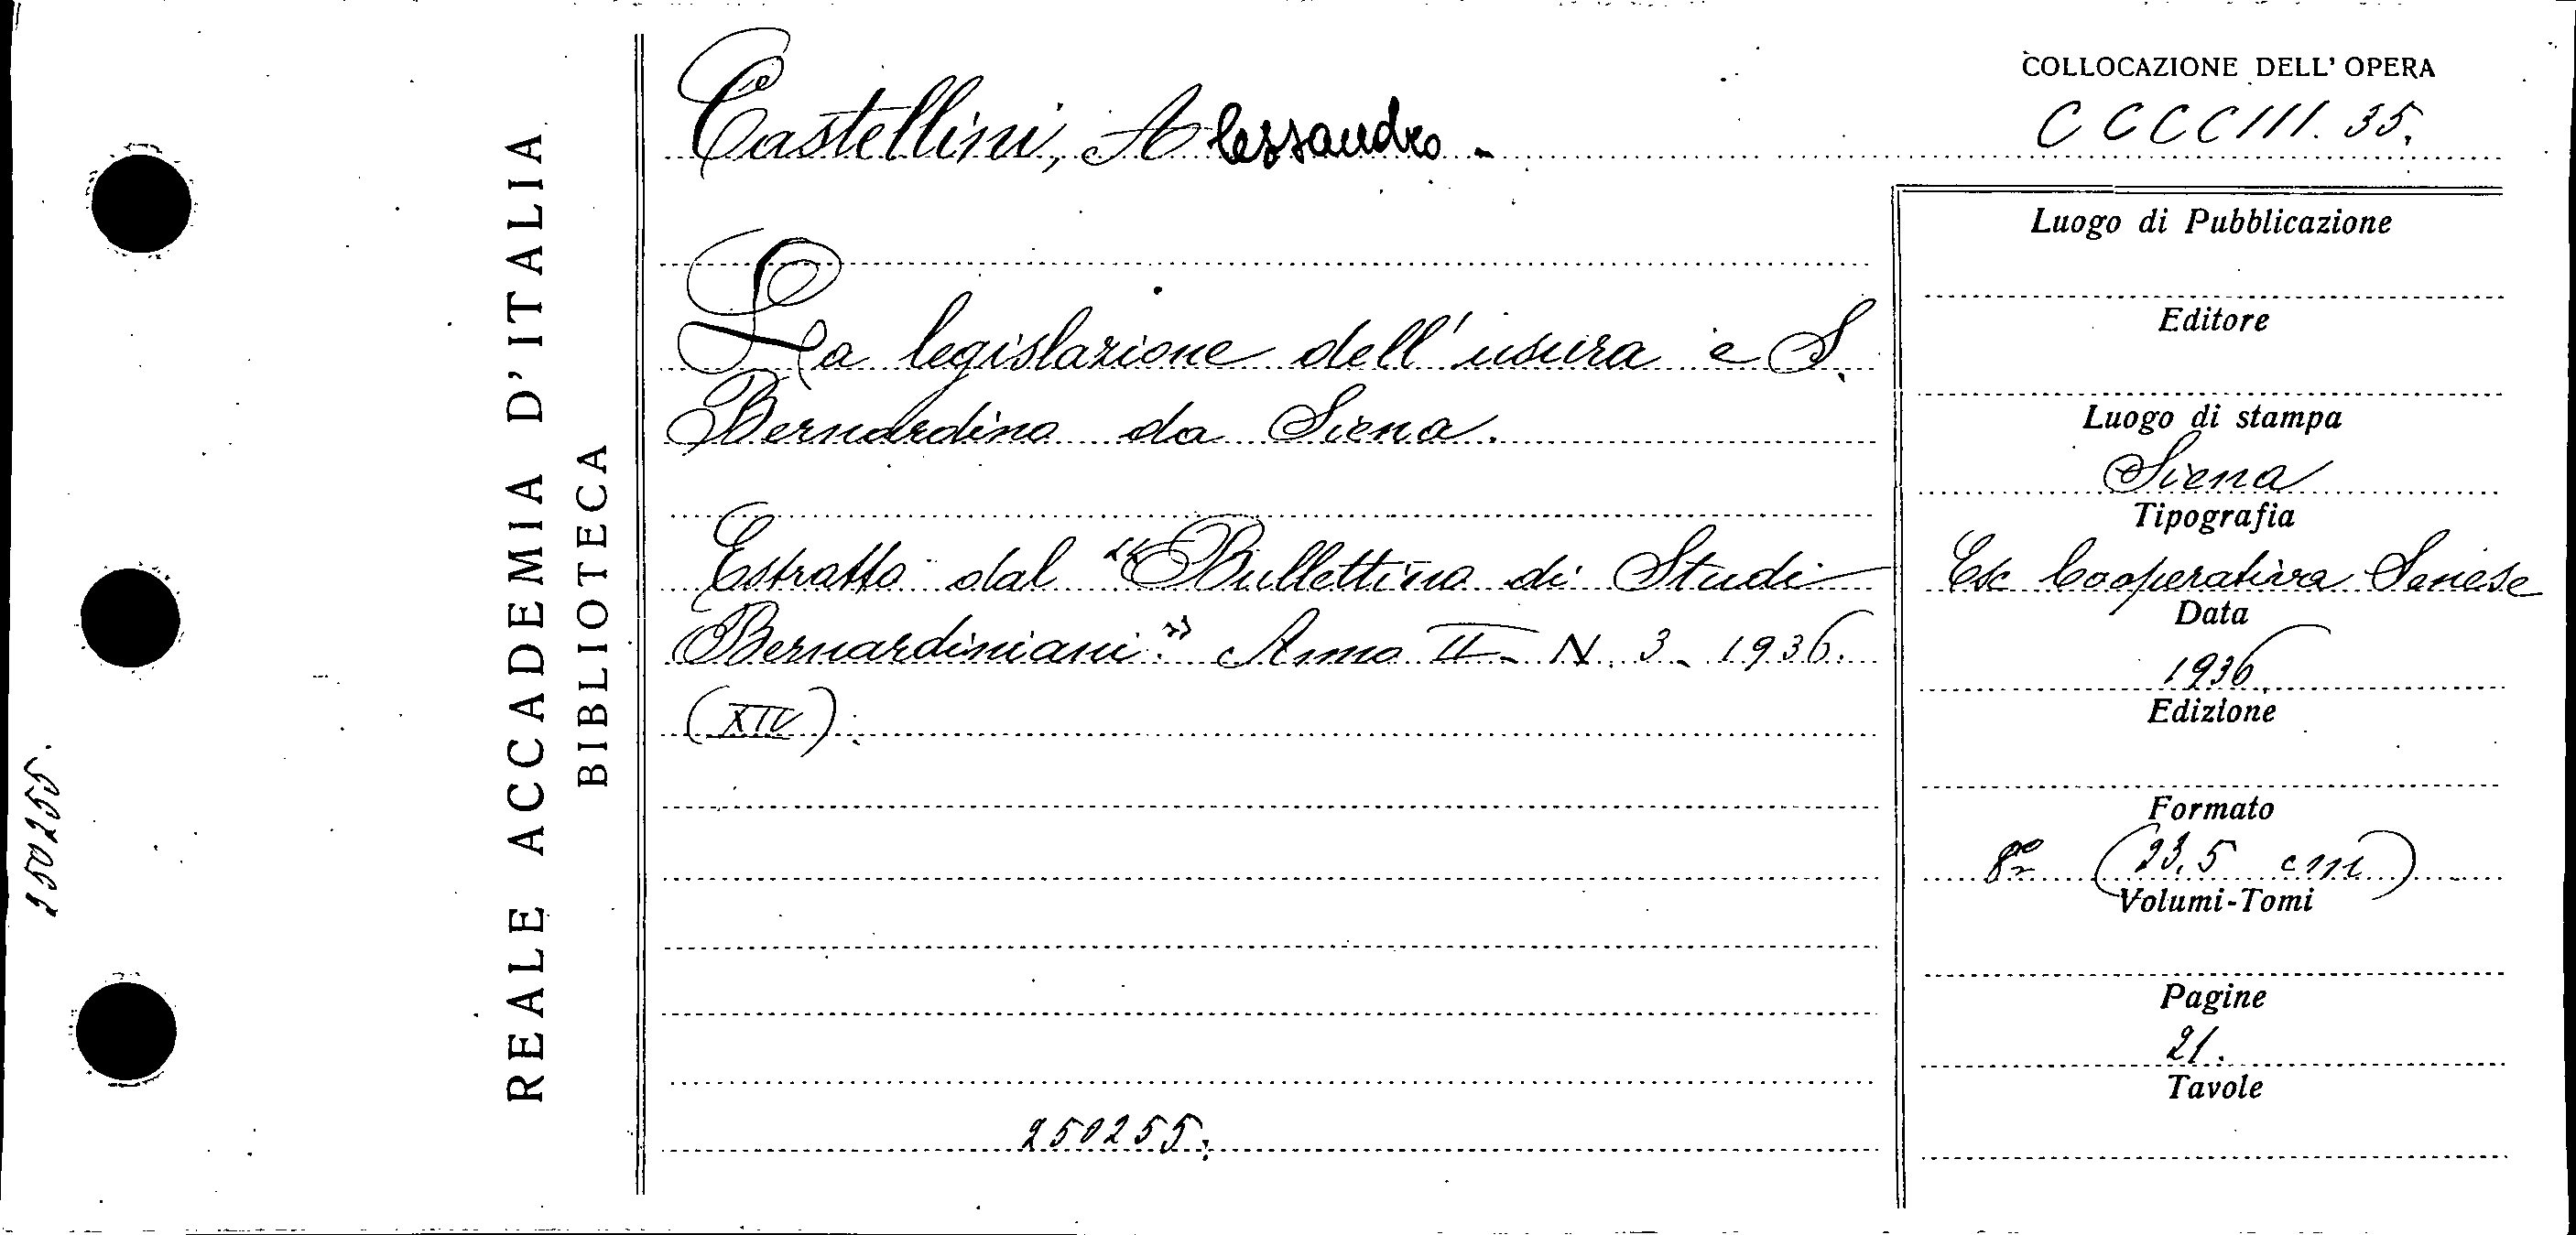 250255.
REALE ACCADEMIA D'ITALIA
BIBLIOTECA
Castellini, Alessandro.
La legislazione dell'usura e S.
Bernardino da Siena.
Estratto dal "Bullettino di Studi
Bernardiniani." Anno II - N. 3 - 1936.
(XIV).
250255.
COLLOCAZIONE DELL'OPERA
CCCCIII. 35.
Luogo di Pubblicazione
Editore
Luogo di stampa
Siena
Tipografia
Cooperativa Senese
Data
1936
Edizione
Formato
8º (23,5 cm)
Volumi-Tomi
Pagine
21.
Tavole